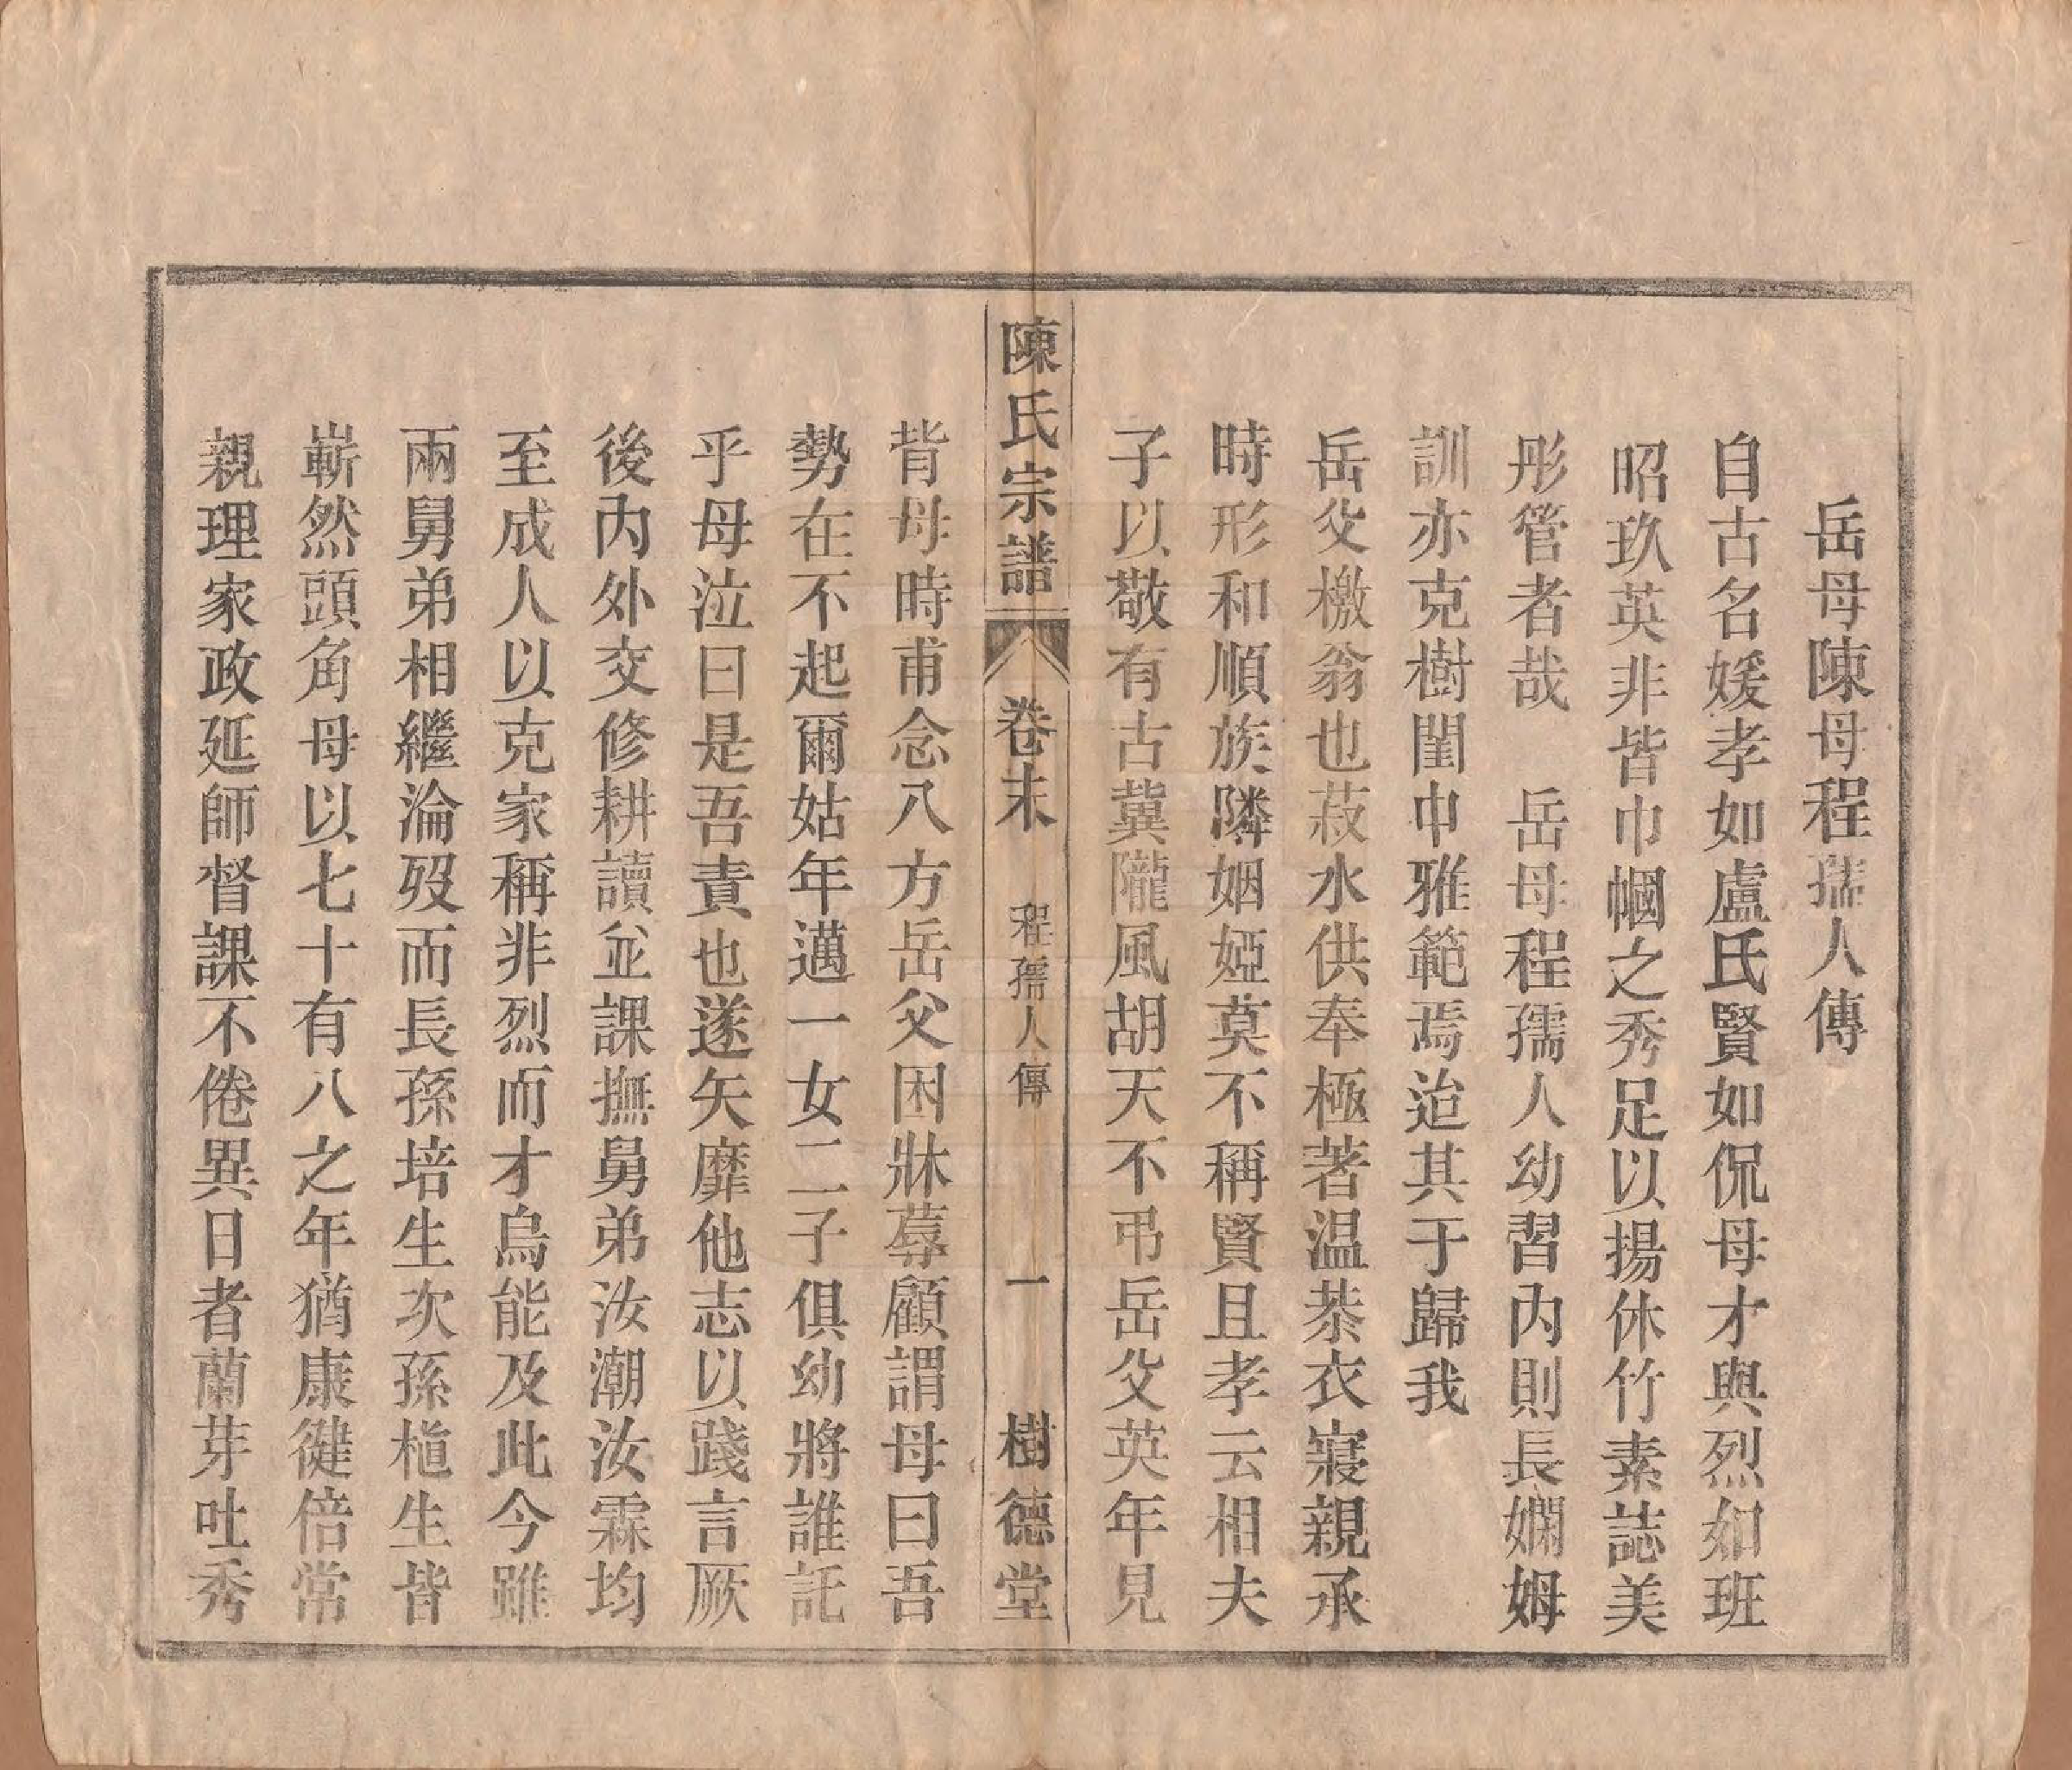 岳母陳母程孺人傳
自古名媛孝如盧氏賢如侃母才與烈如班
昭玖英非皆巾幗之秀足以揚休竹素誌美
彤管者哉　岳母程孺人幼習内則長嫻姆
訓亦克樹閨中雅範焉迨其于歸我
岳父檄翁也菽水供奉極著温恭衣寢親承
時形和順族隣姻婭莫不稱賢且孝云相夫
子以敬有古冀隴風胡天不弔岳父英年見
陳氏宗譜　卷末　程孺人傳　一　樹德堂
背母時甫念八方岳父困牀蓐顧謂母曰吾
勢在不起爾姑年邁一女二子俱幼將誰託
乎母泣曰是吾責也遂矢靡他志以踐言厥
後内外交修耕讀並課撫舅弟汝潮汝霖均
至成人以克家稱非烈而才烏能及此今雖
兩舅弟相繼淪歿而長孫培生次孫植生皆
嶄然頭角母以七十有八之年猶康健倍常
親理家政延師督課不倦異日者蘭芽吐秀